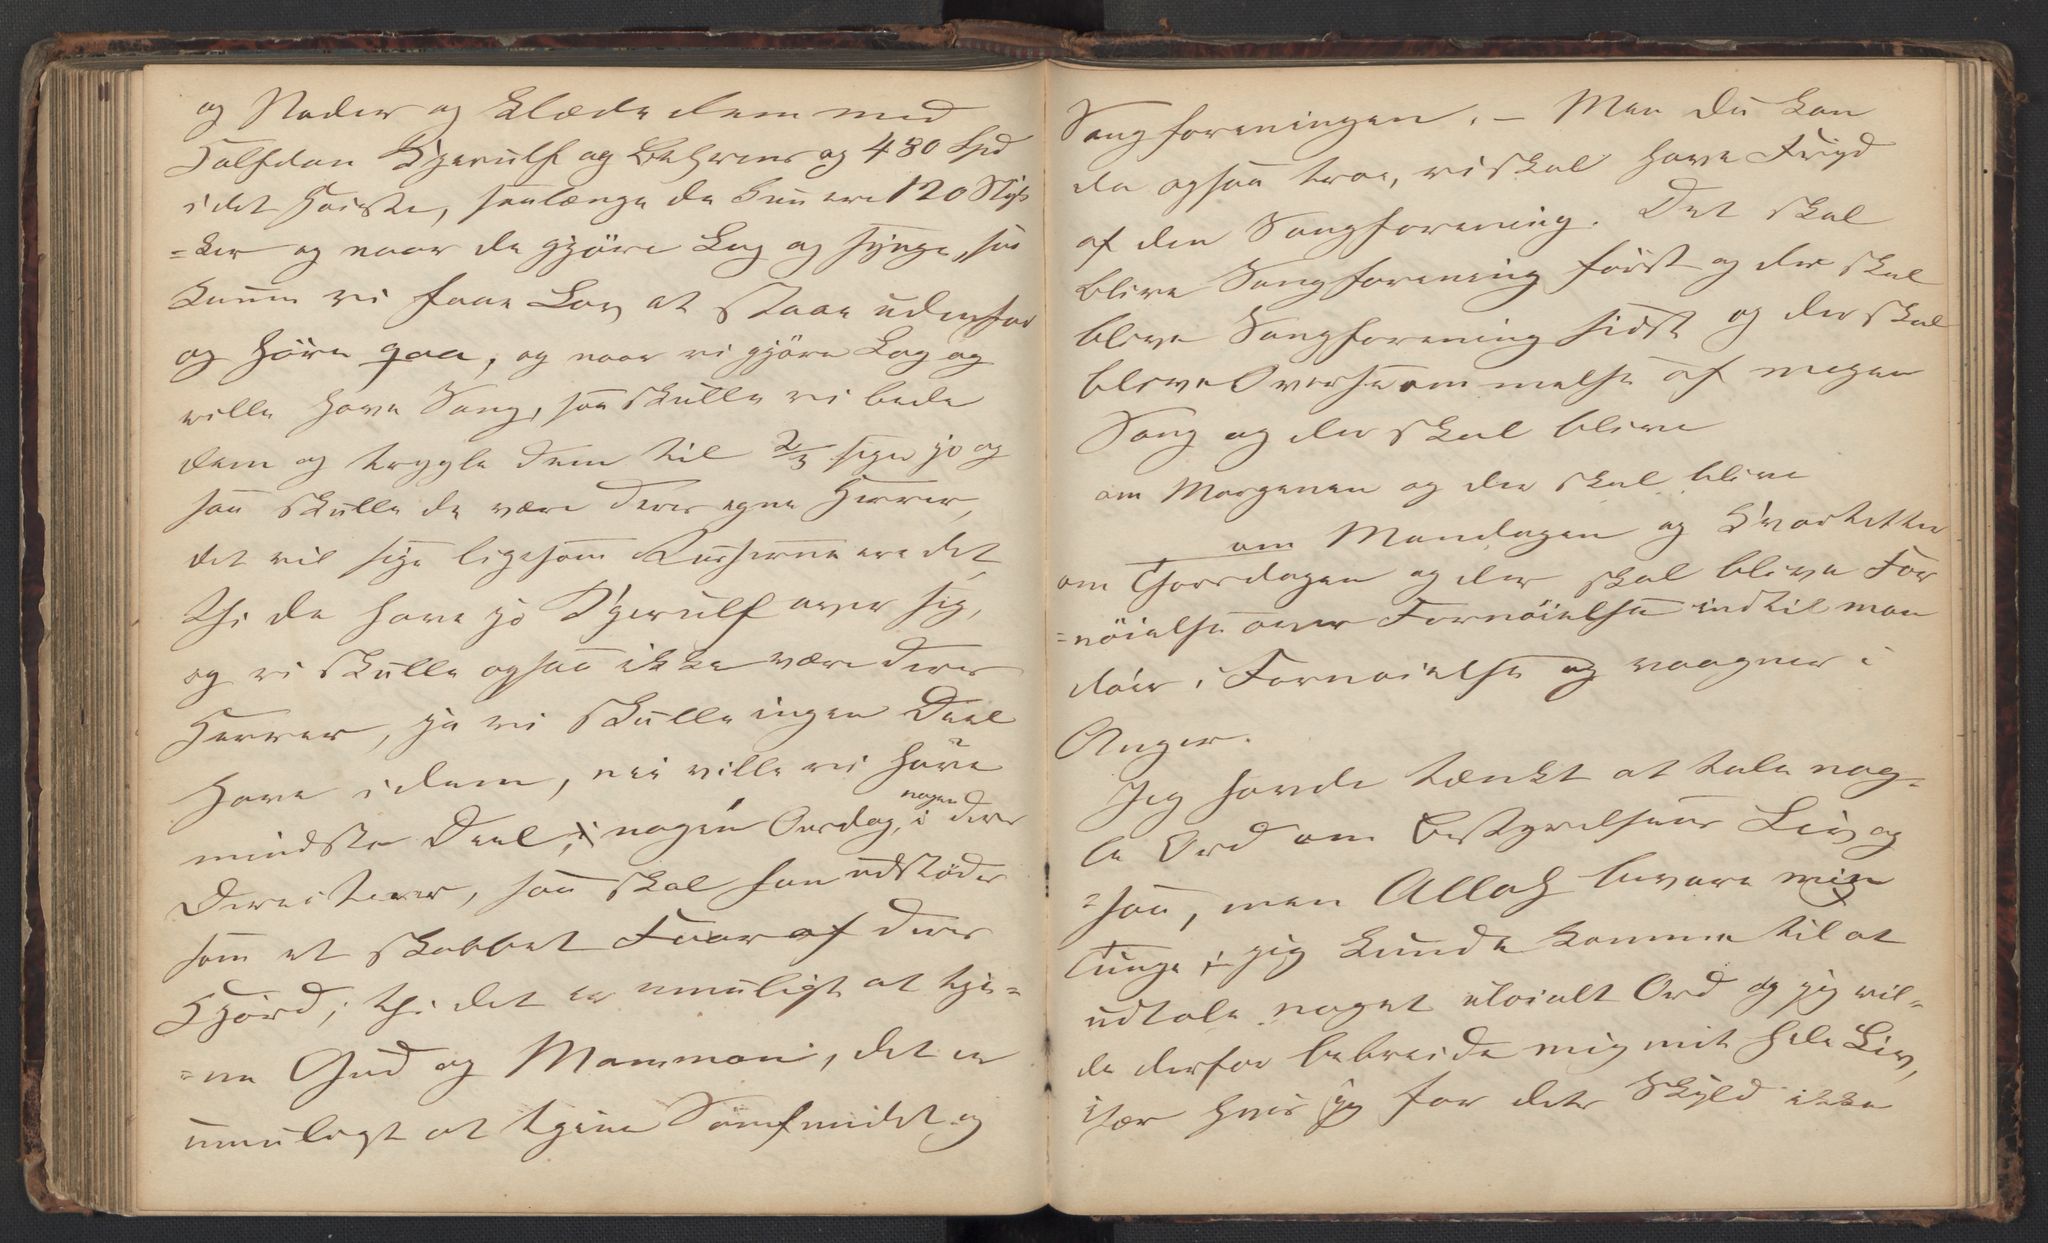 og Noder og klæde dem med
Halfdan Kjerulf og Behrens og 480 Spd
i det Høieste, saalænge de kun ere 120 Styk
=ker og naar de gjøre Lag og synge, saa
kunne vi faae Lov at staae udenfor
og høre paa, og naar vi gjøre Lag og
ville have Sang, saa skulle vi bede
dem og trygle dem til 2/3 sige jo og
saa skulle de være deres egne Herrer,
det vil sige ligesom Russerne ere det,
thi de have jo Kjerulf over sig,
og vi skulle ogsaa ikke være deres
Herrer, ja vi skulle ingen Deel
have i dem, nei ville vi have
mindste Deel, i nogen Onsdag, i nogen deres
Directeurer, saa skal han udstødes
som et skabbet Faar af deres
Hjørd; thi det er umuligt at tje=
=ne Gud og Mammon, det er
umuligt at tjene Samfundet og
Sangforeningen. – Men du kan
da ogsaa troe, vi skal have Fryd
af den Sangforening. Det skal
blive Sangforening først og der skal
blive Sangforening sidst og der skal
blive Oversvømmelse af megen
Sang og der skal blive
om Morgenen og der skal blive
om Mandagen og Kvartetter
om Thorsdagen og der skal blive For
=nøielse over Fornøielse indtil man
døer i Fornøielse og vaagner i
Anger.
Jeg havde tænkt at tale nog=
le Ord om Bestyrelsens Liv og
=saa, men Allah bevare min
Tunge, jeg kunde komme til at
udtale noget uloialt Ord og jeg vil=
de derfor bebreide mig mit hele Liv,
især hvis jeg for dets Skyld ikke